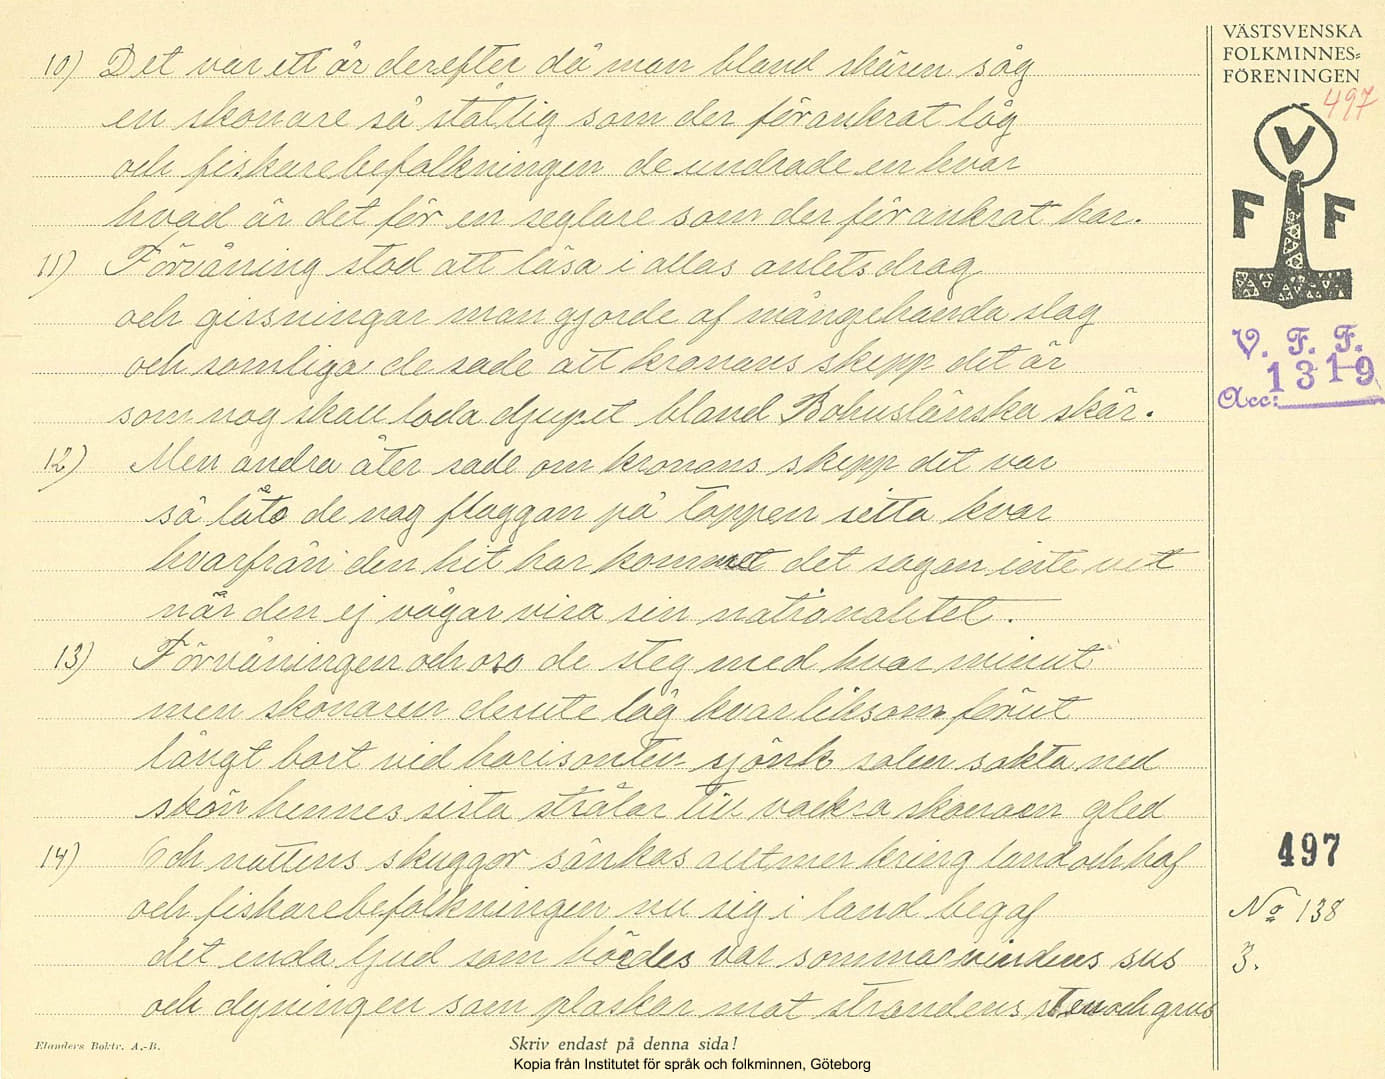 VÄSTSVENSKA
FOLKMINNES=
FÖRENINGEN
497
V
F F
V. F. F.
1319
Acc:
10) Det var ett år derefter då man bland skären såg
en skonare så ståtlig som der förankrat låg
och fiskarebefolkningen de undrade en hvar
hvad är det för en seglare som der förankrat har.
11) Förvåning stod att läsa i allas anletsdrag
och gissningar man gjorde af mångehanda slag
och somliga de sade att kronans skepp det är
som nog skall loda djupet bland Bohuslänska skär.
12) Men andra åter sade om kronans skepp det var
så låto de nog flaggan på toppen sitta kvar
hvarfrån den hit har kommet det sagan inte vet
når den ej vågar visa sin nationalitet.
13) Förvåningen och oro de steg med hvar minut
men skonaren derute låg kvar liksom förut
långt bort vid horisonten sjönk solen sakta ned
skön hennes sista strålar till vackra skonaren gled
14) Och nattens skuggor sänkas alltmer kring land och haf
och fiskarebefolkningen nu sig i land begaf
det enda ljud som hördes var sommarvindens sus
och dyningen som plaskar mot strandens sten och grus
497
No 138
3.
Elanders Boktr. A.-B.
Skriv endast på denna sida!
Kopia från Institutet för språk och folkminnen, Göteborg